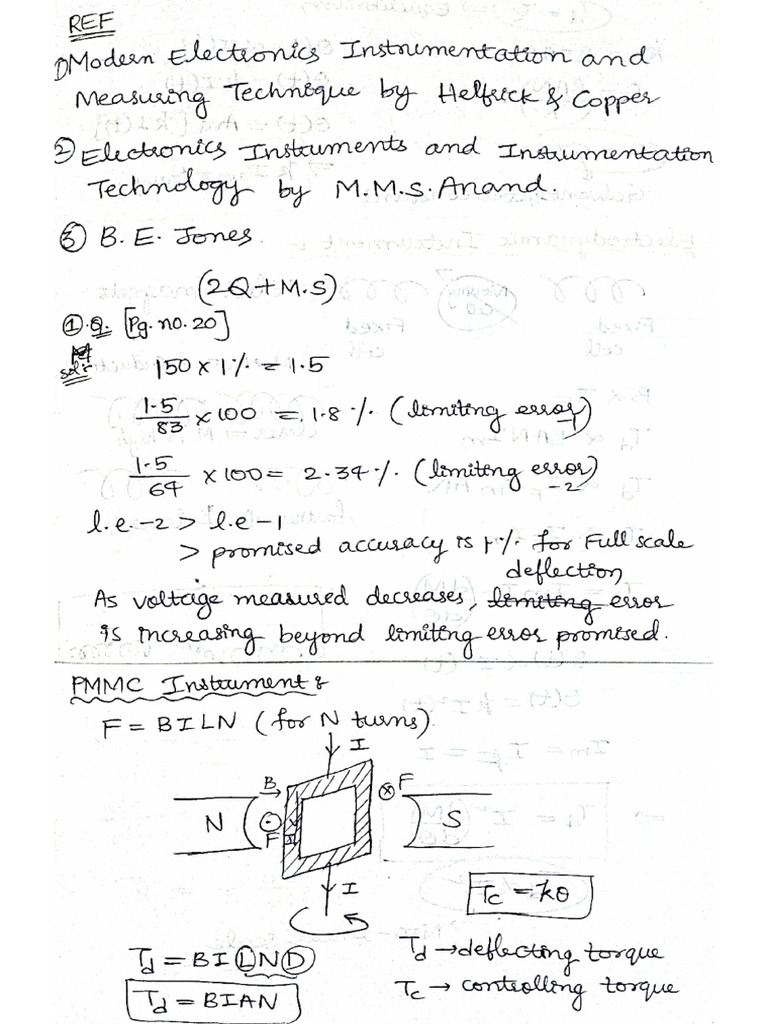 REF
1) Modern Electronics Instrumentation and
Measuring Technique by Helfrick & Copper
2) Electronics Instruments and Instrumentation
Technology by M.M.S. Anand.
3) B. E. Jones.
(2Q + M.S)
1. Q. [Pg. no. 20]
solⁿ:
150 x 1% = 1.5
1.5/83 x 100 = 1.8 % (limiting error)-1
1.5/64 x 100 = 2.34 % (limiting error)-2
l.e-2 > l.e-1
> promised accuracy is 1% for Full scale
deflection
As voltage measured decreases, limiting error
is increasing beyond limiting error promised.
PMMC Instrument :
F = BILN (for N turns)
I
B
F
N
F
S
I
Tc = kθ
Td = BILND
Td = BIAN
Td → deflecting torque
Tc → controlling torque